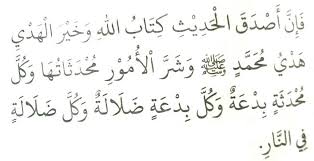 فَإِنَّ أَصْدَقَ الْحَدِيْثِ كِتَابُ اللهِ وَخَيْرَ الْهَدْيِ
هَدْيُ مُحَمَّدٍ ﷺ وَشَرَّ الْأُمُوْرِ مُحْدَثَاتُهَا وَكُلَّ
مُحْدَثَةٍ بِدْعَةٌ وَكُلَّ بِدْعَةٍ ضَلَالَةٌ وَكُلَّ ضَلَالَةٍ
فِي النَّارِ.